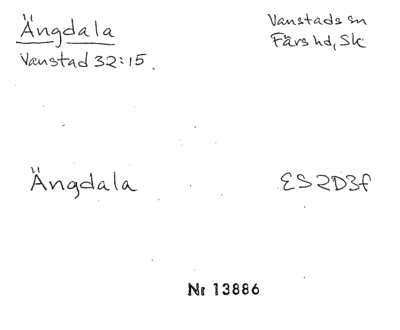 Ängdala
Vanstad 32:15.
Vanstads sn
Färs hd, Sk
Ängdala
ES2D3f
Nr 13886